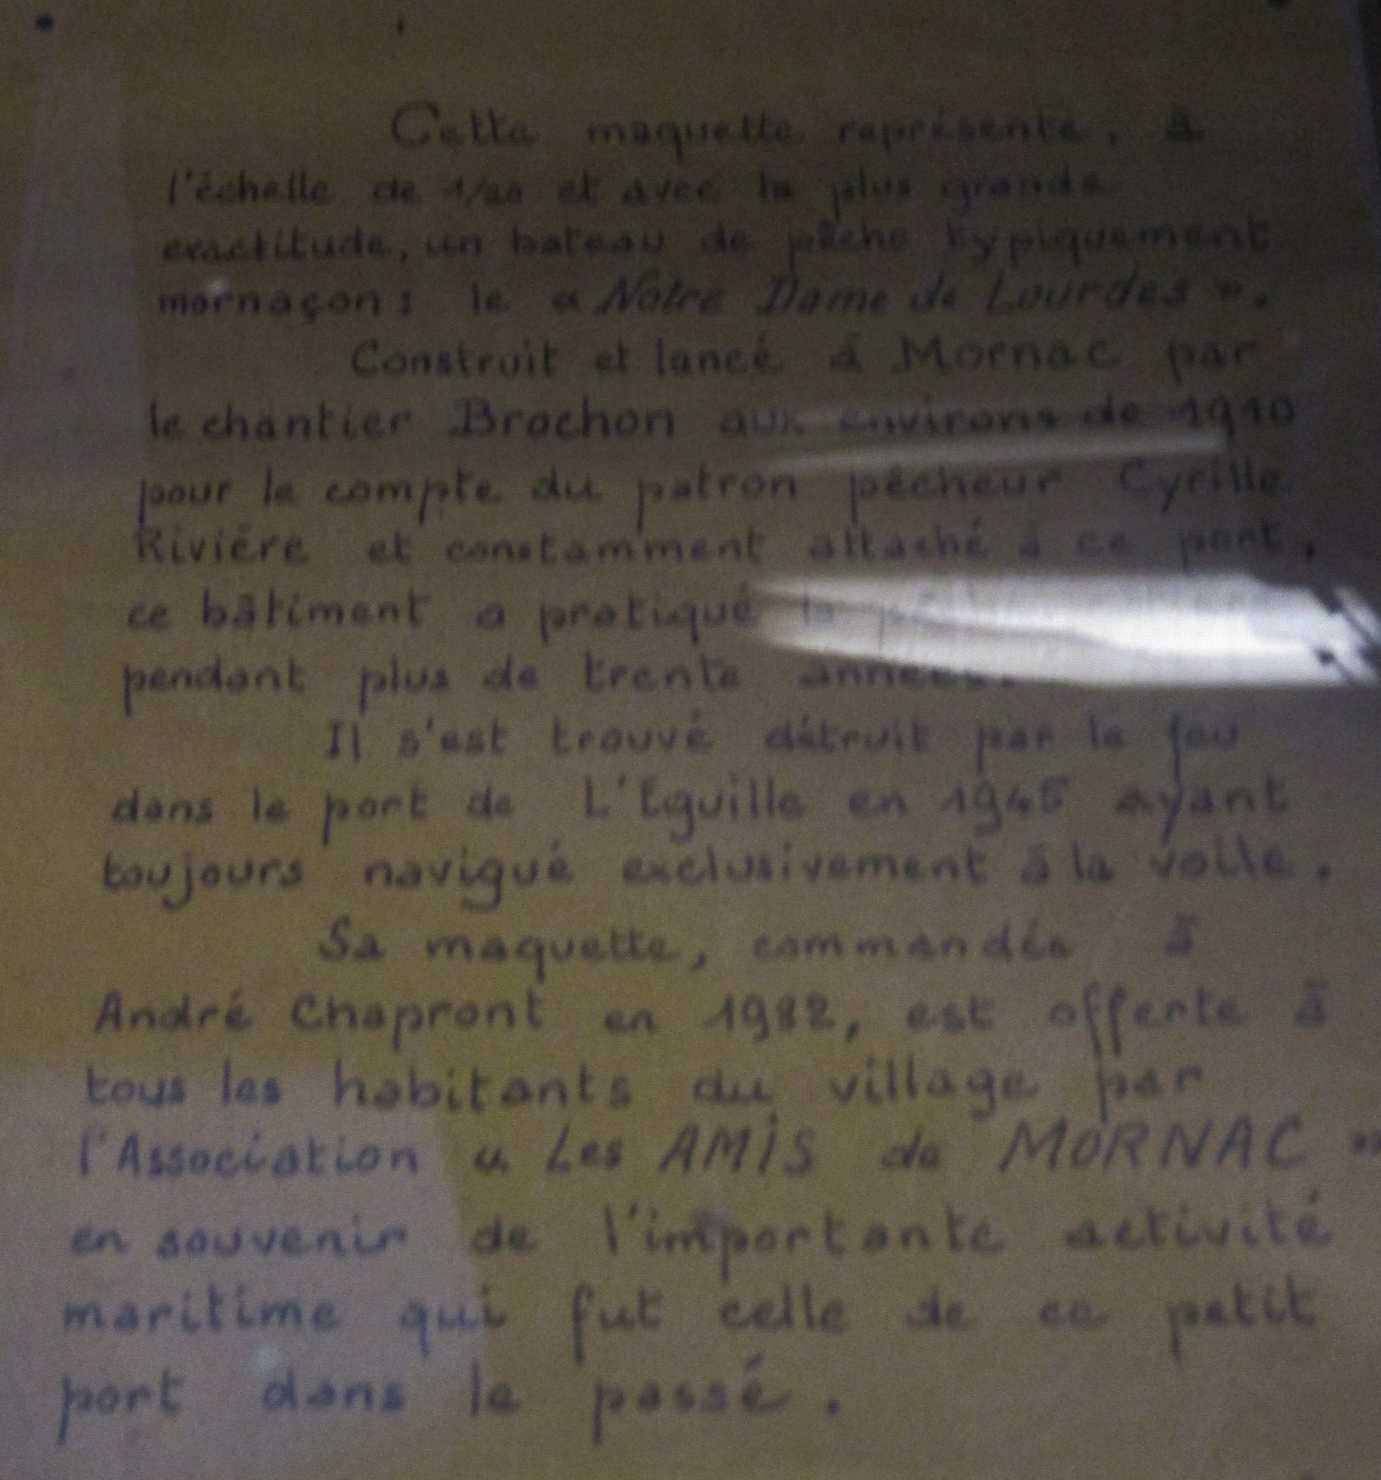 Cette maquette représente, à
l'échelle de 1/20 et avec la plus grande
exactitude, un bateau de pêche typiquement
mornaçon : le « Notre Dame de Lourdes ».
Construit et lancé à Mornac par
le chantier Brochon aux environs de 1910
pour le compte du patron pêcheur Cyrille
Rivière et constamment attaché à ce port,
ce bâtiment a pratiqué la
pendant plus de trente années.
Il s'est trouvé détruit par le feu
dans le port de L'Eguille en 1945 ayant
toujours navigué exclusivement à la voile.
Sa maquette, commandée à
André Chapront en 1982, est offerte à
tous les habitants du village par
l'Association « Les AMiS de MORNAC »
en souvenir de l'importante activité
maritime qui fut celle de ce petit
port dans le passé.